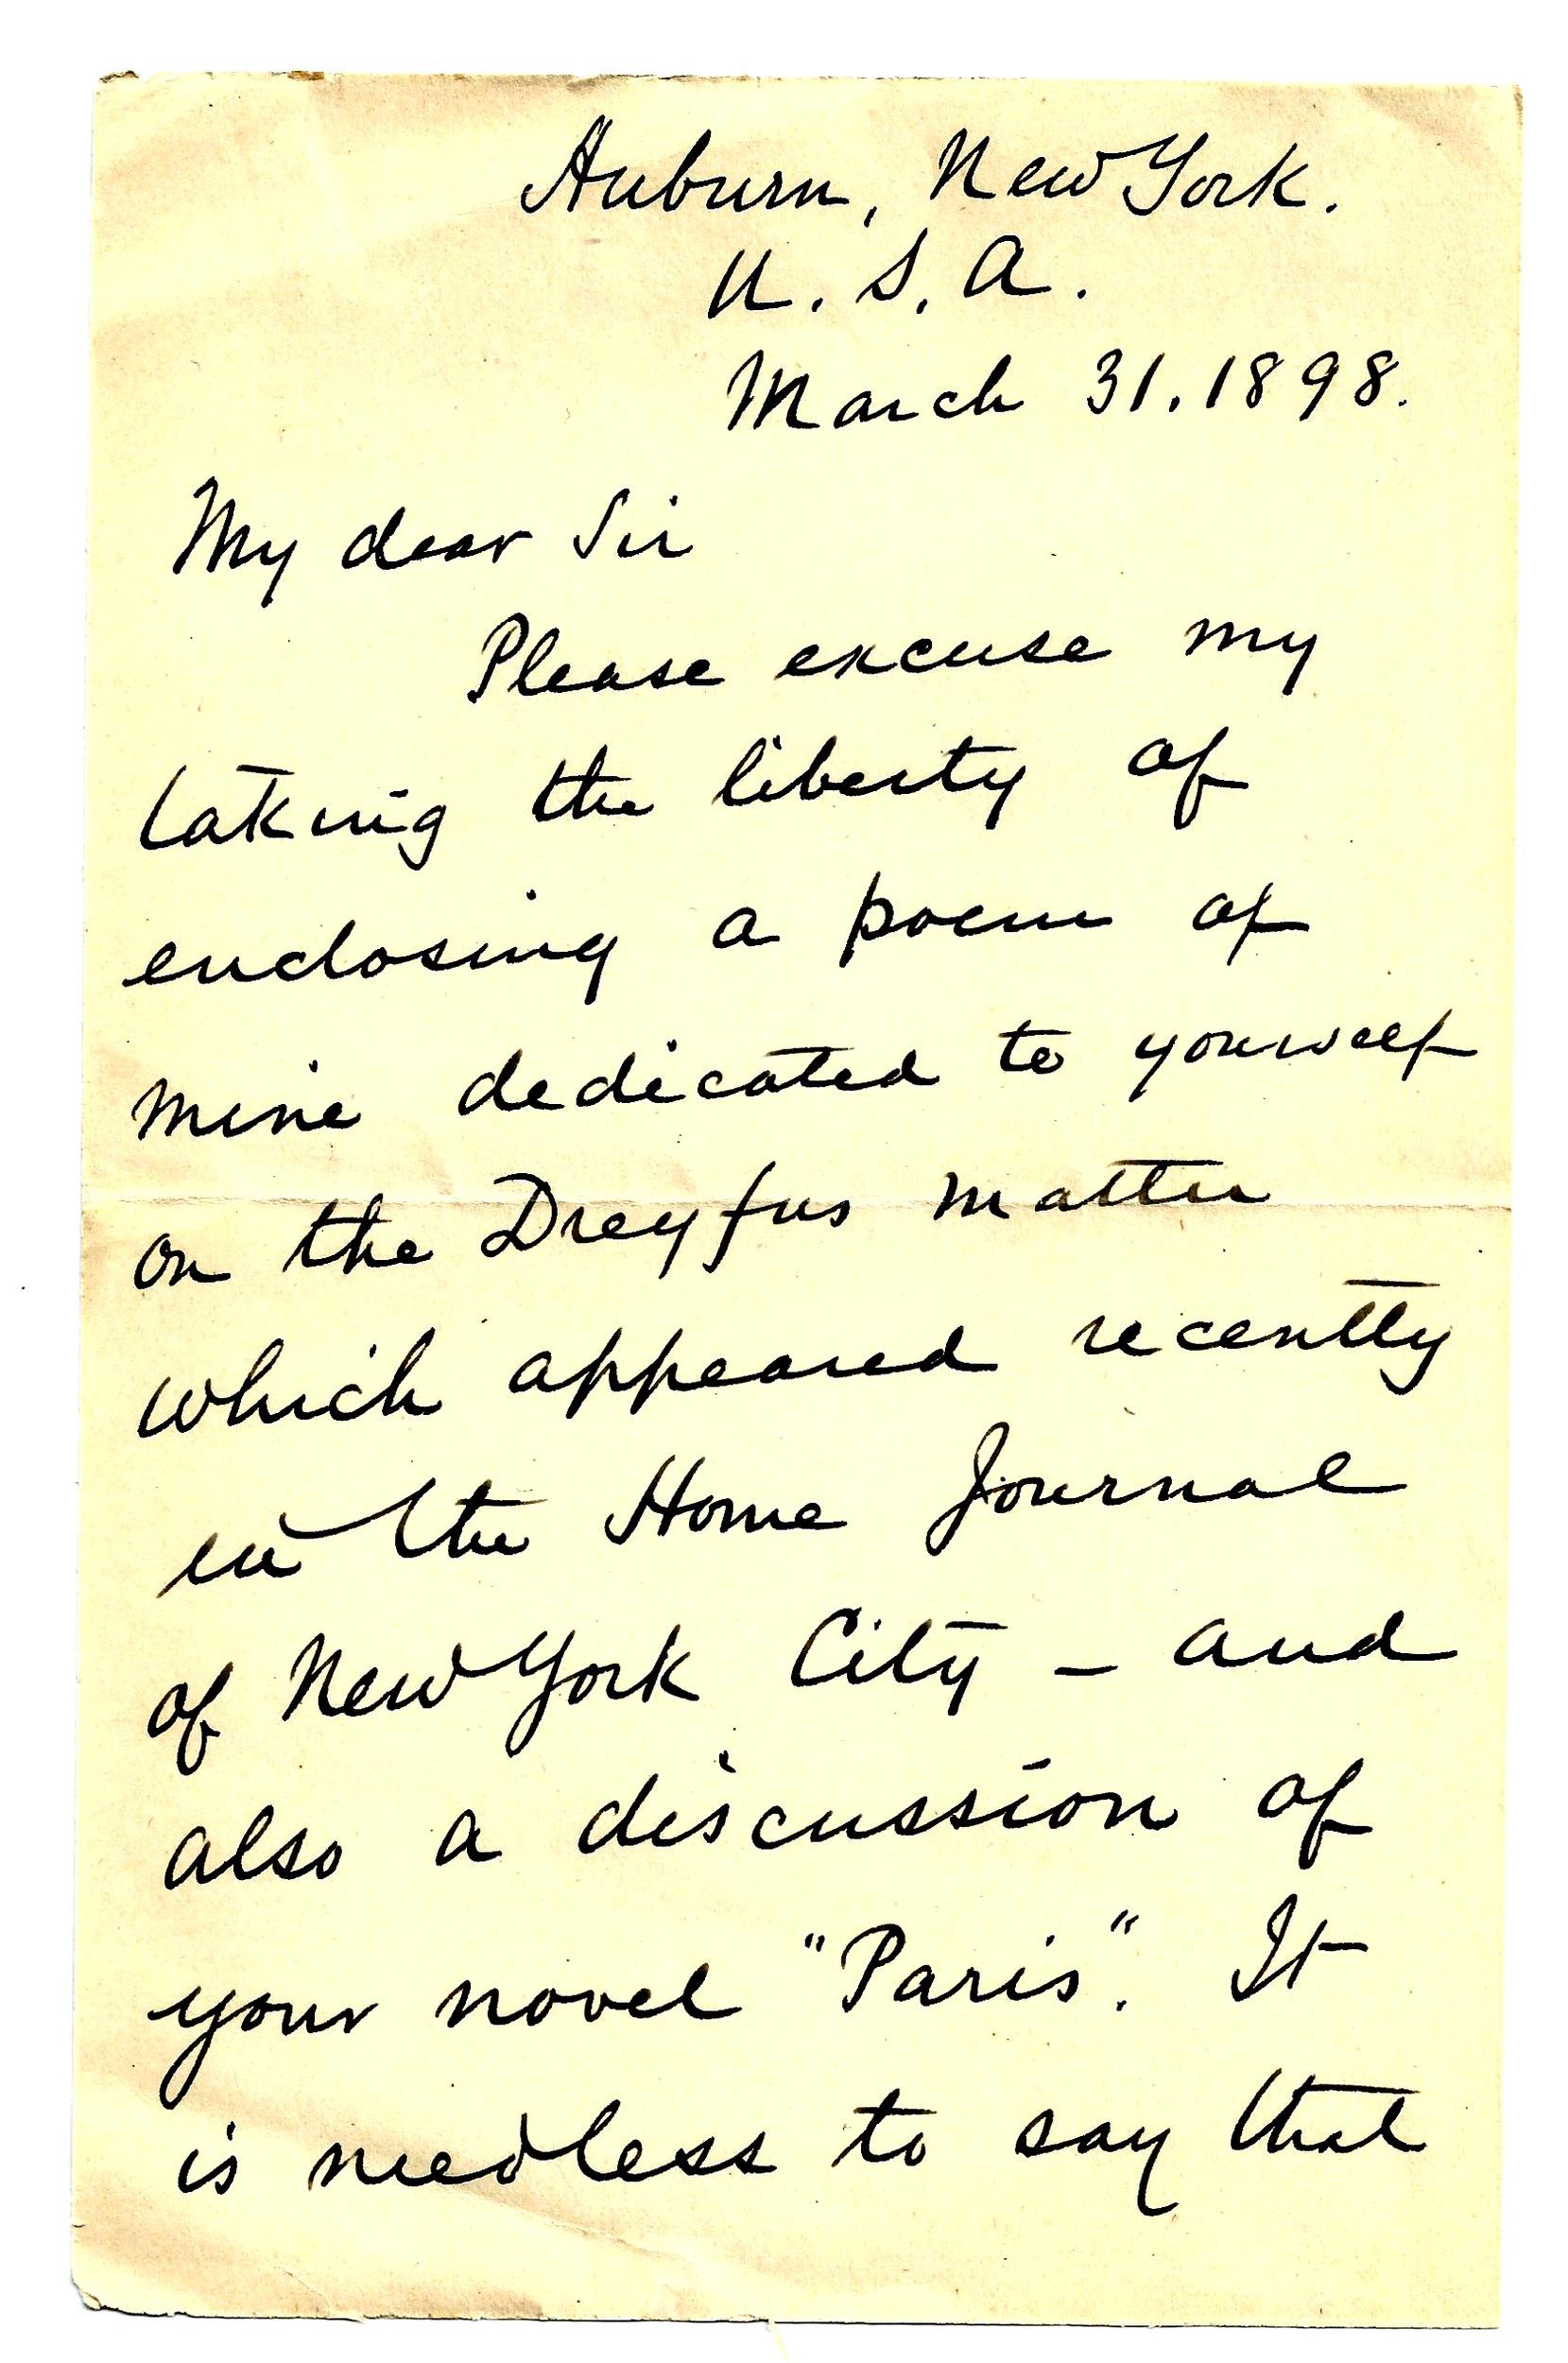 Auburn, New York.
U. S. A.
March 31. 1898.
My dear Sir
Please excuse my
taking the liberty of
enclosing a poem of
mine dedicated to yourself
on the Dreyfus matter
which appeared recently
in the Home Journal
of New York City – and
also a discussion of
your novel "Paris". It
is needless to say that